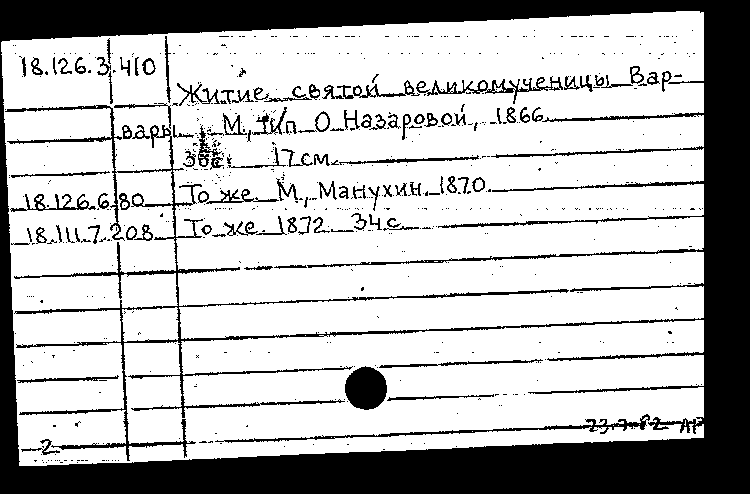 18.126.3.410
Житие святой великомученицы Вар-
вары М., тип О. Назаровой, 1866.
17 см.
18.126.6.80 То же. М., Манухин, 1870.
18.111.7.208 То же. 1872. 34 с.
2 АР